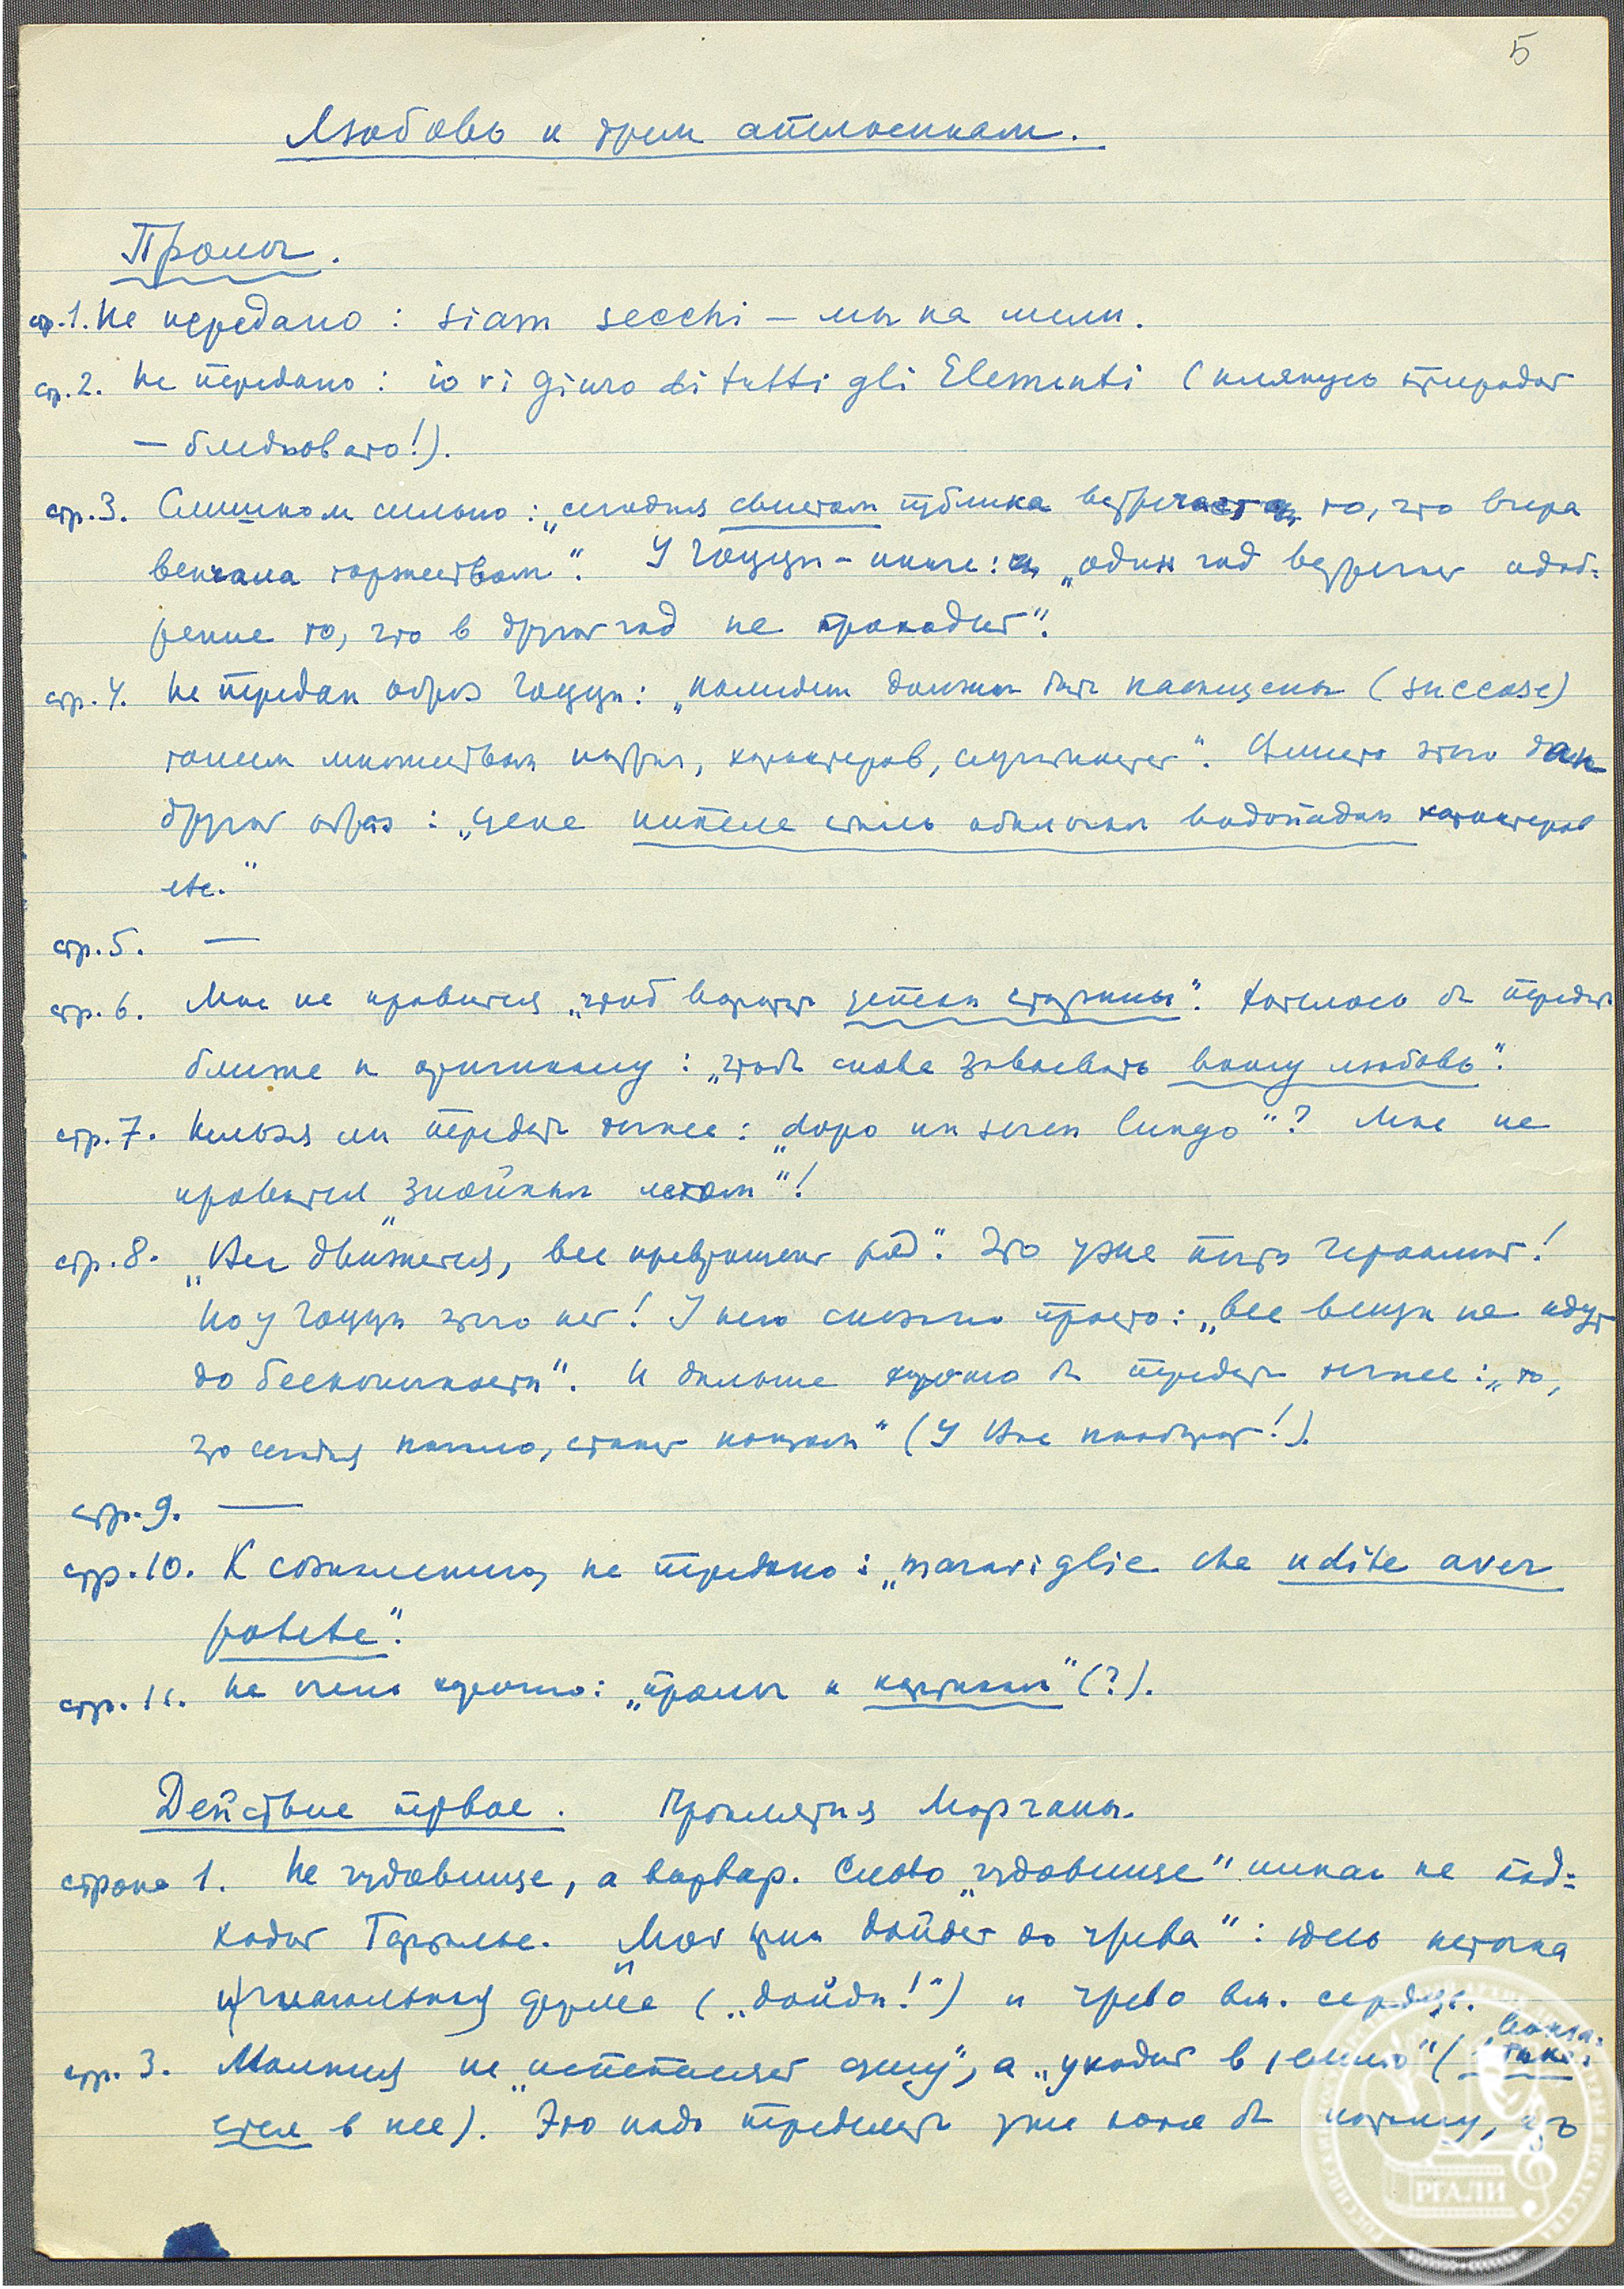 5
Любовь к трем апельсинам.
Пролог.
стр. 1. Не передано: siam secchi — мы на мели.
стр. 2. Не передано: io vi giuro di tutti gli Elementi (клянусь природой
— бледновато!).
стр. 3. Слишком сильно: „сегодня свистом публика встречает то, что вчера
венчала торжеством“. У Гоцци — иначе: „один год встречает одоб=
рение то, что в другой год не проходит“.
стр. 4. Не передан образ Гоцци: „комедии должны быть насыщены (succose)
таким множеством интриг, характеров, случайностей“. Вместо этого дан
другой образ: „чене кипеле стиль обильным водопадом характеров
etc.“
стр. 5. —
стр. 6. Мне не нравится „чтоб вернуть успехи старины“. Хотелось бы передать
ближе к оригиналу: „чтоб снова завоевать вашу любовь“.
стр. 7. Нельзя ли передать точнее: „dopo un seren lungo“? Мне не
нравится „знойным летом“!
стр. 8. „Все движется, все превращений ряд“. Это уже почти Гераклит!
Но у Гоцци этого нет! У него сказано просто: „все вещи не идут
до бесконечности“. И дальше хорошо бы передать точнее: „то,
что сегодня начало, станет концом“ (У Вас наоборот!).
стр. 9. —
стр. 10. К сожалению, не передано: „maraviglie che udite aver
potete“.
стр. 11. Не очень хорошо: „пролог к картинам“ (?).
Действие первое. Проклятия Морганы.
строка 1. Не чудовище, а варвар. Слово „чудовище“ никак не под=
ходит Тарталье. „Мой крик дойдет до чрева“: здесь неточна
глагольная форма („дойди!“) и чрево вм. сердце.
стр. 3. Молния не „испепеляет сушу“, а „уходит в землю“ („вонза=
ется в нее). Это надо переделать уже хотя бы потому, что
РГАЛИ